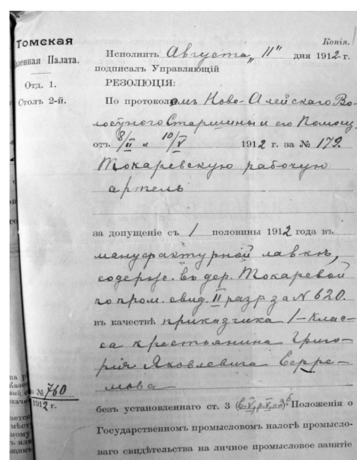 Копія.
Томская
Казенная Палата.
Отд. 1.
Столъ 2-й.
Исполнить Августа „11" дня 1912 г.
подписалъ Управляющій
РЕЗОЛЮЦІЯ:
По протоколамъ Ново-Алейскаго Во-
лостного Старшины и его Помощ
отъ 8/II и 10/V 1912 г. за № 179.
Токаревскую рабочую
артель
за допущеніе съ 1 половины 1912 года въ
мануфактурной лавкѣ,
содерж. въ дер. Токаревой
по пром. свид. II разр за № 620.
въ качествѣ приказчика 1-клас-
са крестьянина Григо-
рія Яковлевича
№ 760
1912 г.
безъ установленнаго ст. 3 Положенія о
Государственномъ промысловомъ налогѣ промысло-
ваго свидѣтельства на личное промысловое занятіе